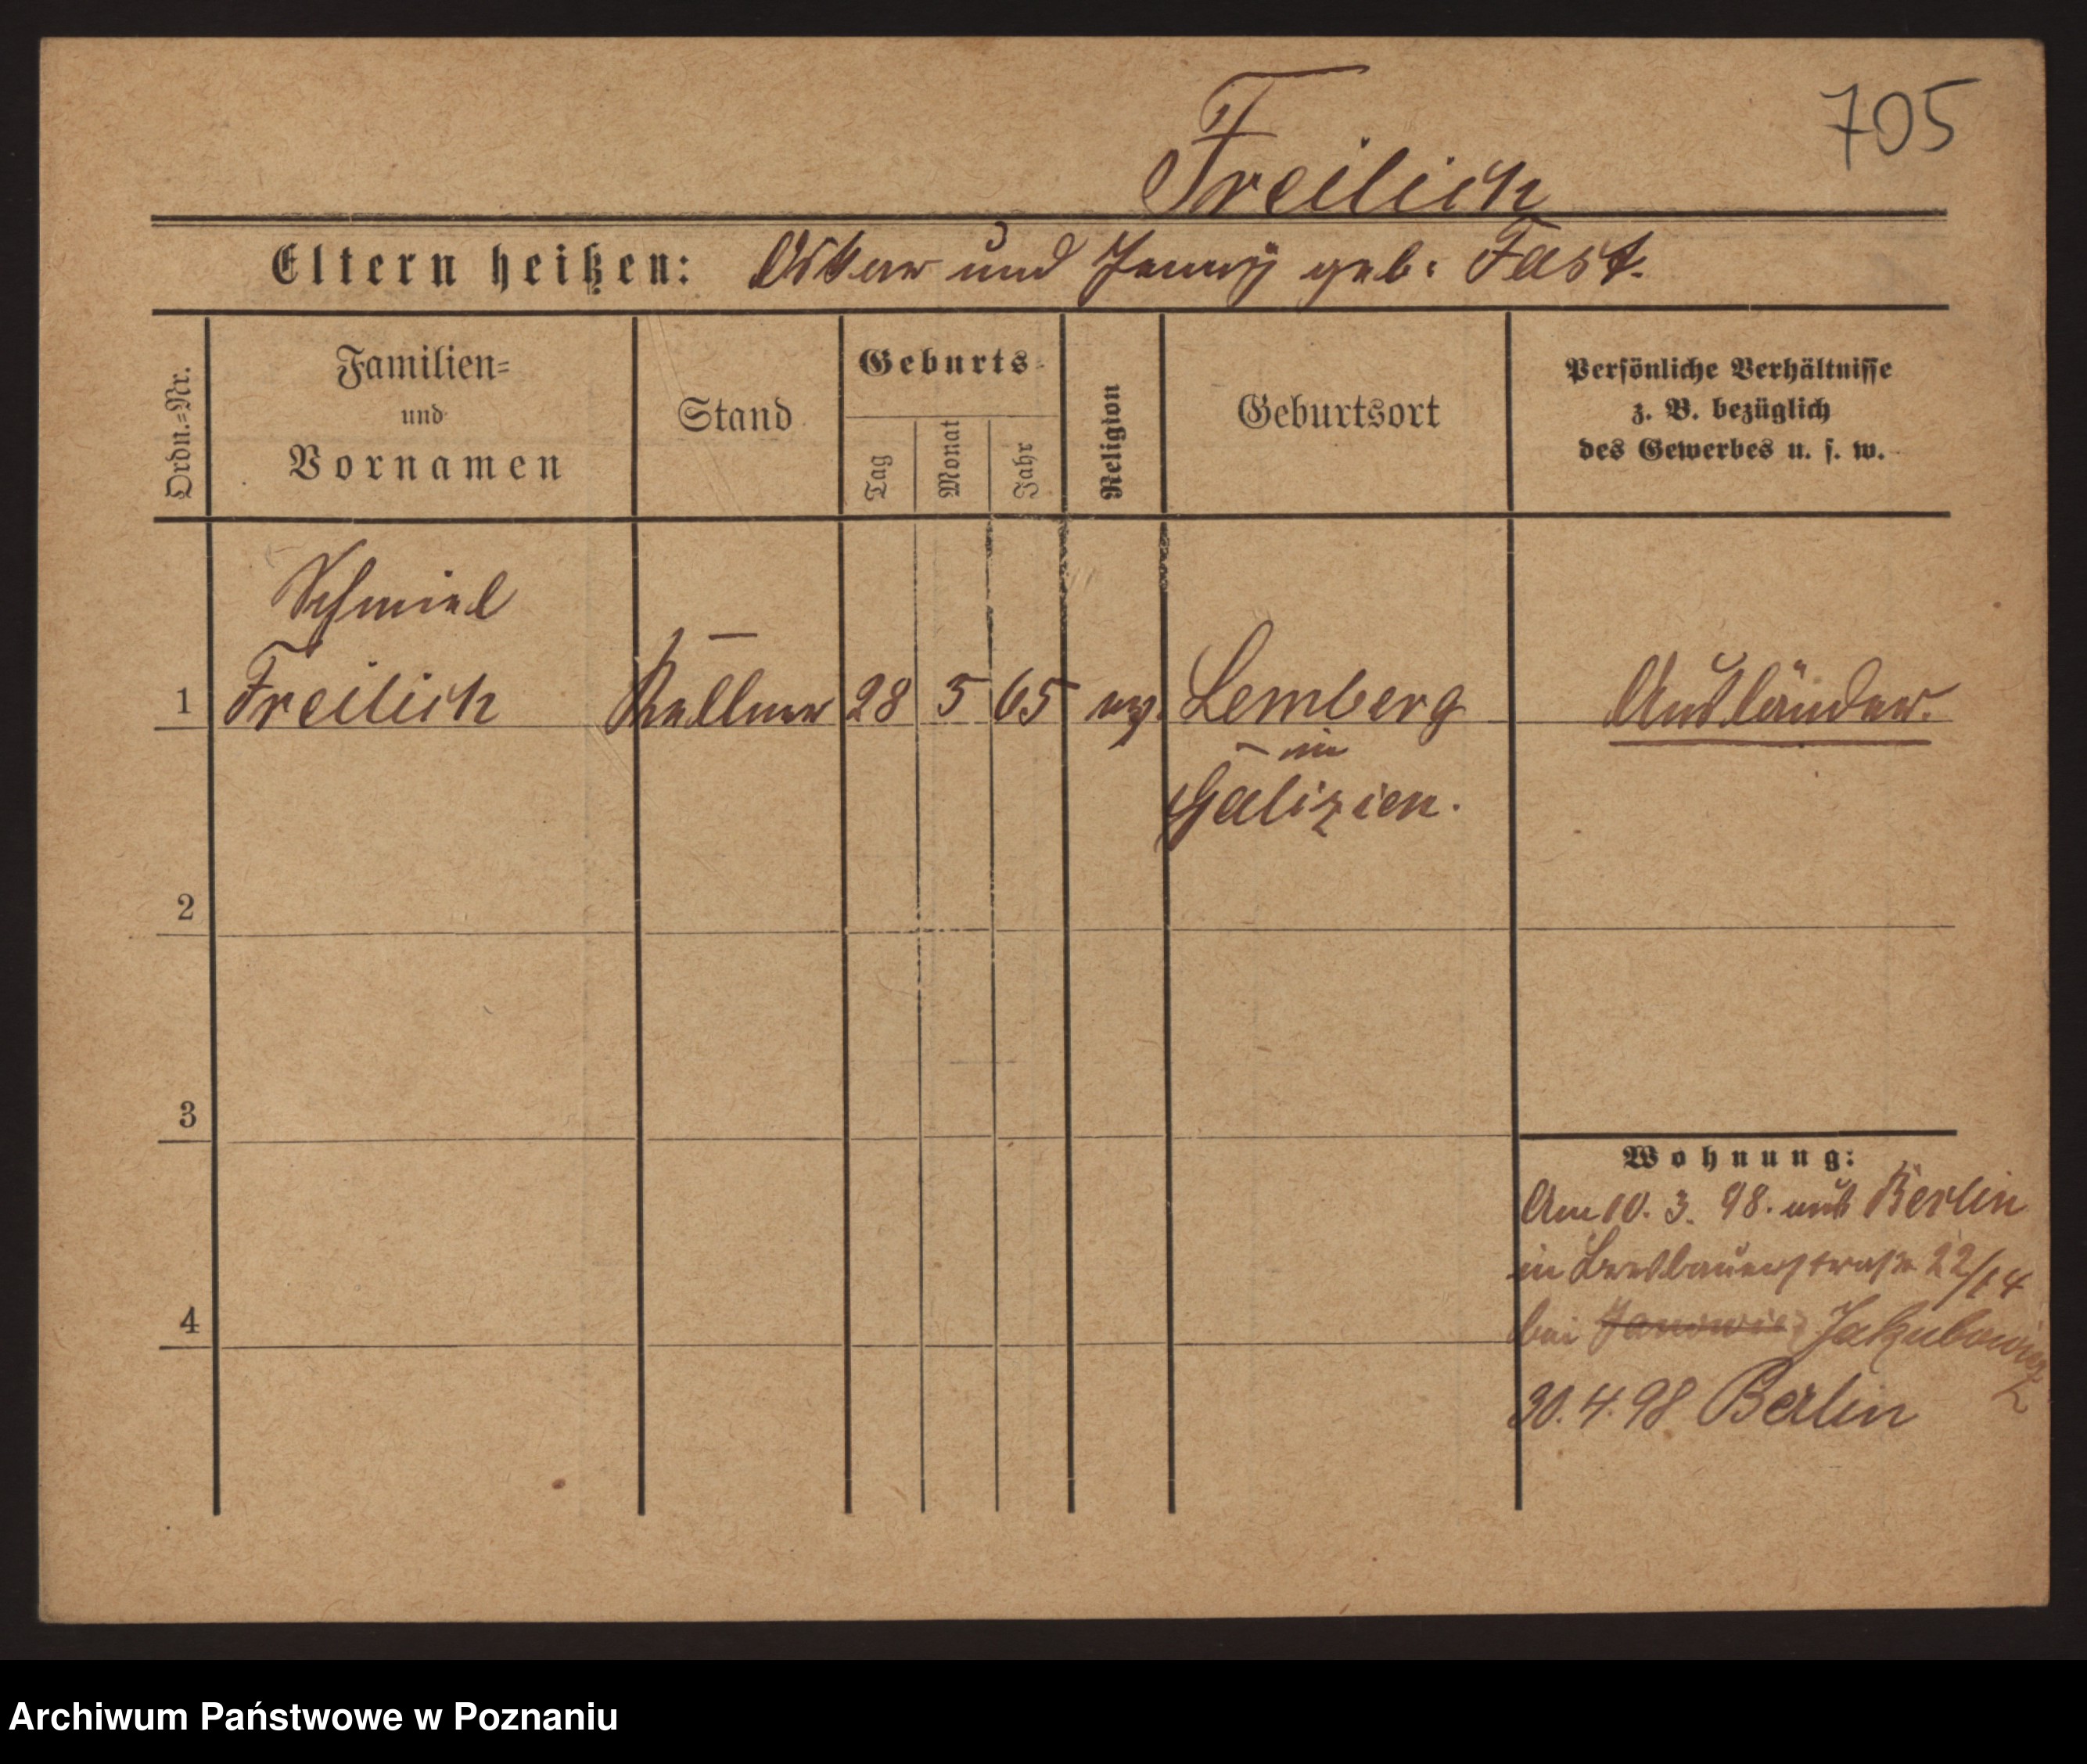 705
Freilich
Eltern heißen: Oskar und Jenny geb. Fast.
Ordn.=Nr.
Familien=
und
Vornamen
Stand
Geburts=
Tag
Monat
Jahr
Religion
Geburtsort
Persönliche Verhältnisse
z. B. bezüglich
des Gewerbes u. s. w.
Schmiel
1 Freilich Kellner 28 5 65 Lemberg Ausländer.
in
Galizien.
2
3
4
Wohnung:
Am 10. 3. 98. aus Berlin
in Breslauerstraße 22/
bei Jakubowicz
30. 4. 98 Berlin
Archiwum Państwowe w Poznaniu